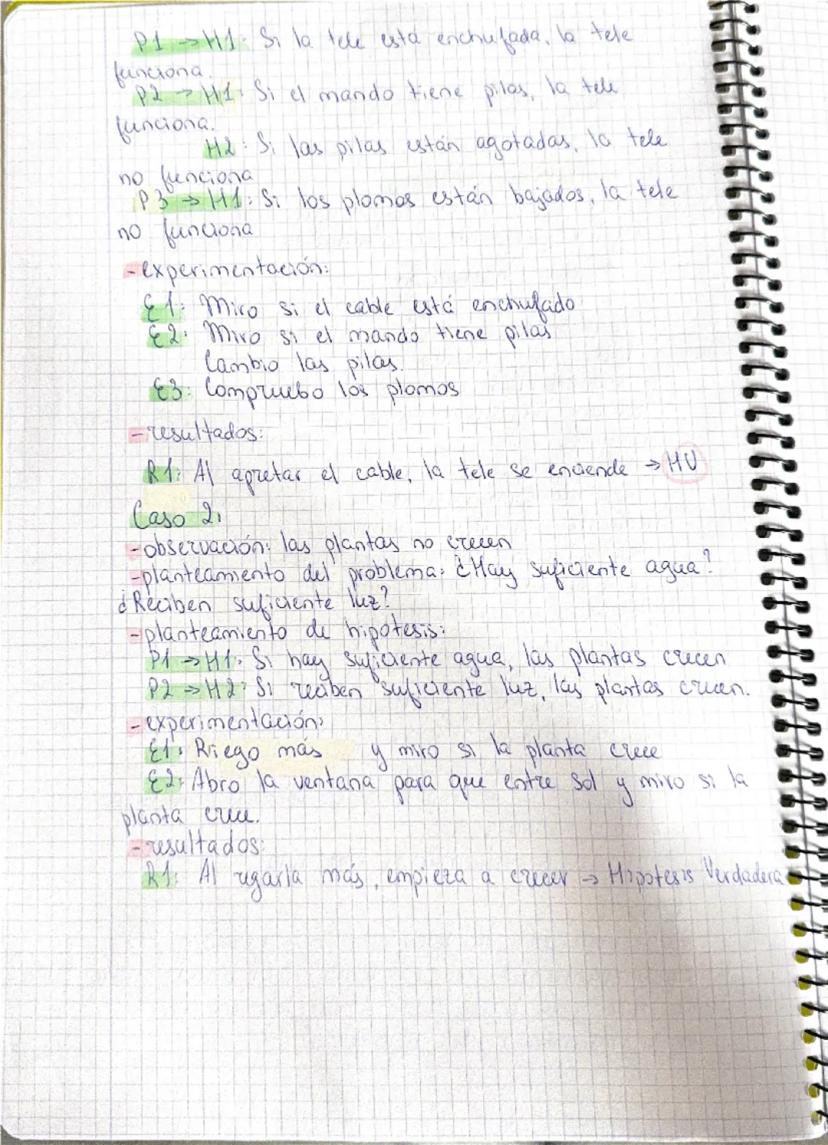 P1 → H1: Si la tele está enchufada, la tele
funciona.
P2 → H1: Si el mando tiene pilas, la tele
funciona.
H2: Si las pilas están agotadas, la tele
no funciona
P3 → H1: Si los plomos están bajados, la tele
no funciona
- experimentación:
E1: Miro si el cable está enchufado
E2: Miro si el mando tiene pilas
Cambio las pilas
E3: Compruebo los plomos
- resultados:
R1: Al apretar el cable, la tele se enciende → HV
Caso 2:
- observación: las plantas no crecen
- planteamiento del problema: ¿Hay suficiente agua?
¿Reciben suficiente luz?
- planteamiento de hipotesis:
P1 → H1: Si hay suficiente agua, las plantas crecen
P2 → H2: Si reciben suficiente luz, las plantas crecen.
- experimentación:
E1: Riego más y miro si la planta crece
E2: Abro la ventana para que entre sol y miro si la
planta crece.
- resultados:
R1: Al regarla más, empieza a crecer → Hipotesis Verdadera